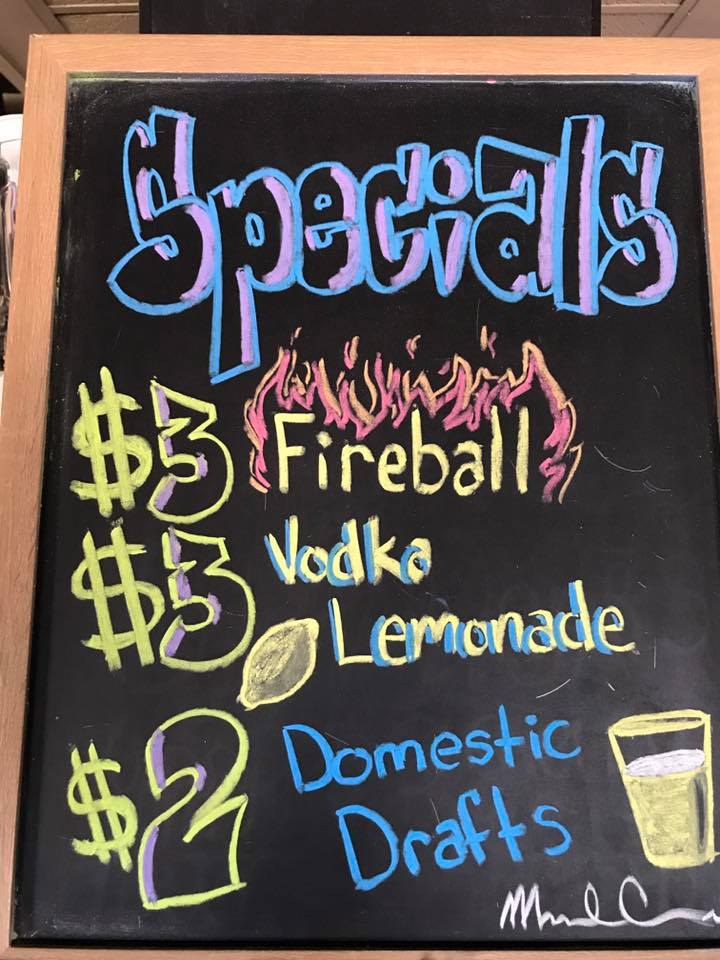 Specials
$3 Fireball
$3 Vodka
Lemonade
$2 Domestic
Drafts